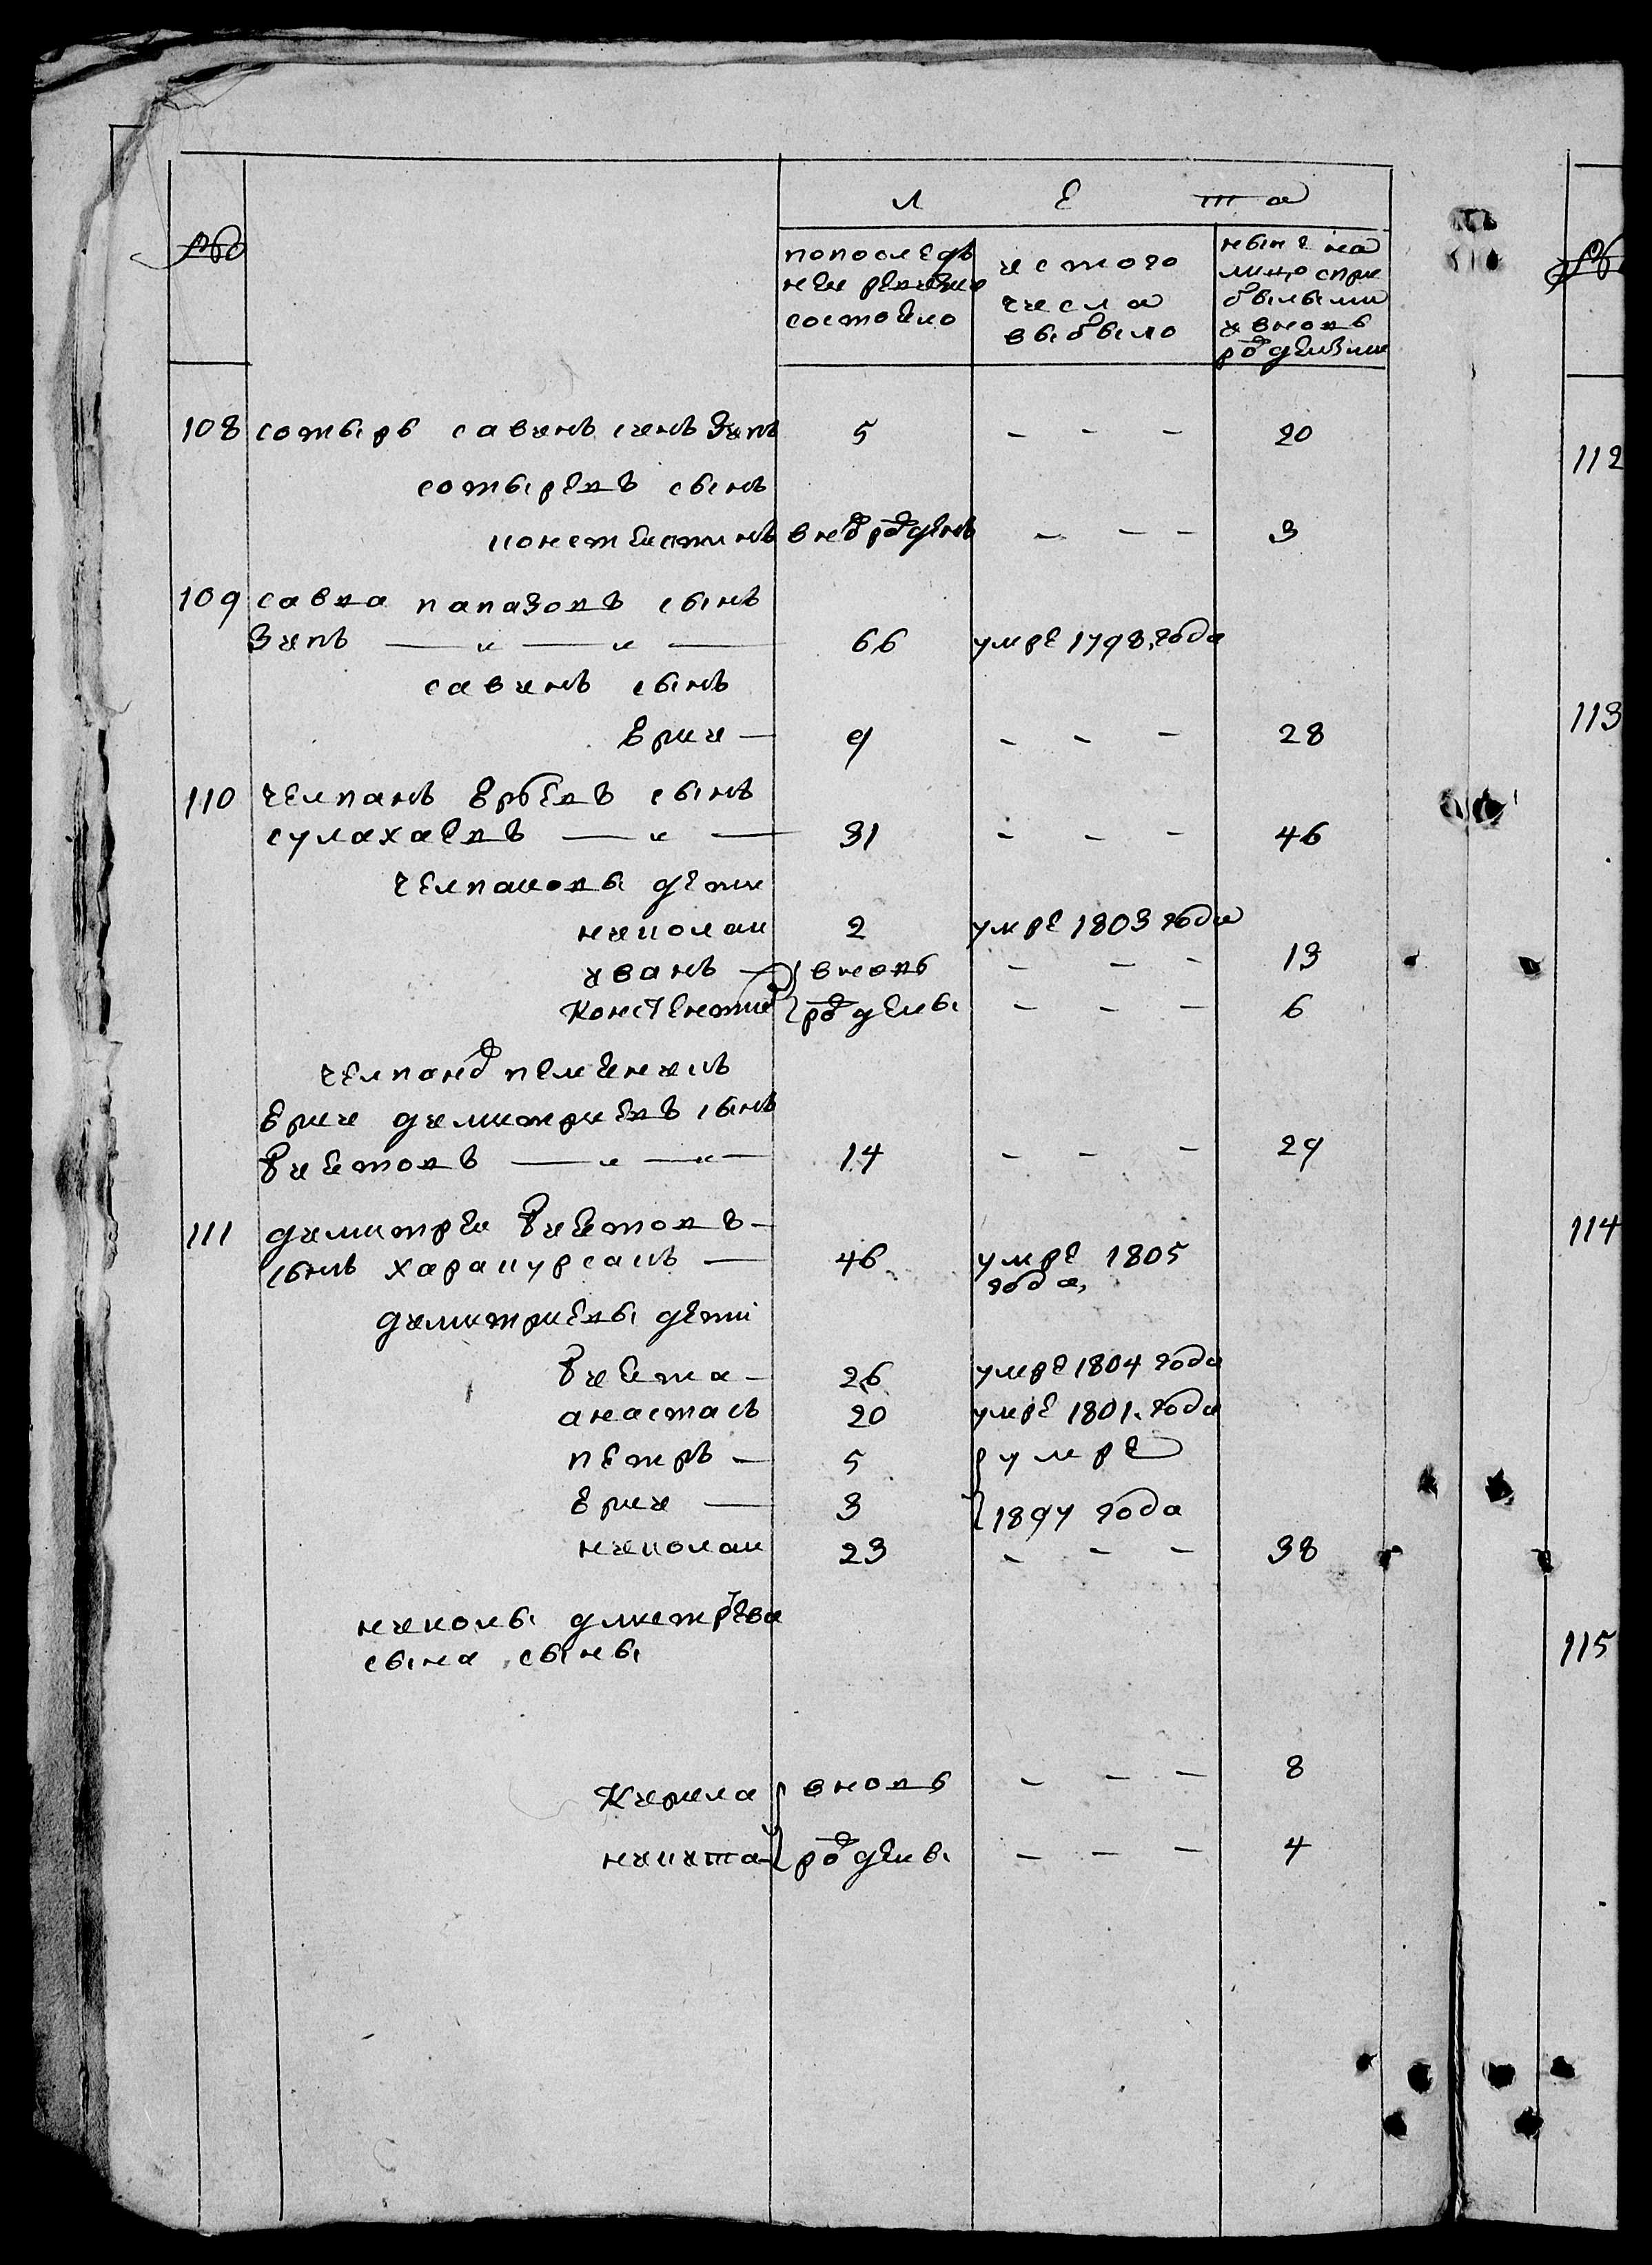 Л Е Т а
№
попоследъ
ней ревизие
состояло
исТого
числа
выбыло
ныне на
лицо спри
былыми
ивновь
родившими
108 сотырь савинъ синъ Зипъ 5 - - - 20
сотыревъ сынъ
константинъ внов роденъ - - - 3
109 савва папазовъ сынъ
Зипъ — „ — „ — 66 умре 1798, года
савинъ сынъ
Ерии — 9 - - - 28
110 челпанъ Ербевъ сынъ
сулахаевъ — „ — 31 - - - 46
челпановы дети
николаи 2 умре 1803 года
иванъ — вновь - - - 13
Констентин родены - - - 6
челпано племеникъ
Ерии димитриевъ сынъ
Фиетовъ — „ — „ — 14 - - - 29
111 димитреи Фиетовъ -
сынъ харакурсакъ — 46 умре 1805
года,
димитриевы дети
Фиета - 26 умре 1804 года
анастасъ 20 умре 1801. года
петръ — 5 умре
Ерии — 3 1897 года
николаи 23 - - - 38
николы дмитрева
сына сыны
Кирила вновь - - - 8
никита родены - - - 4
№
112
113
114
115